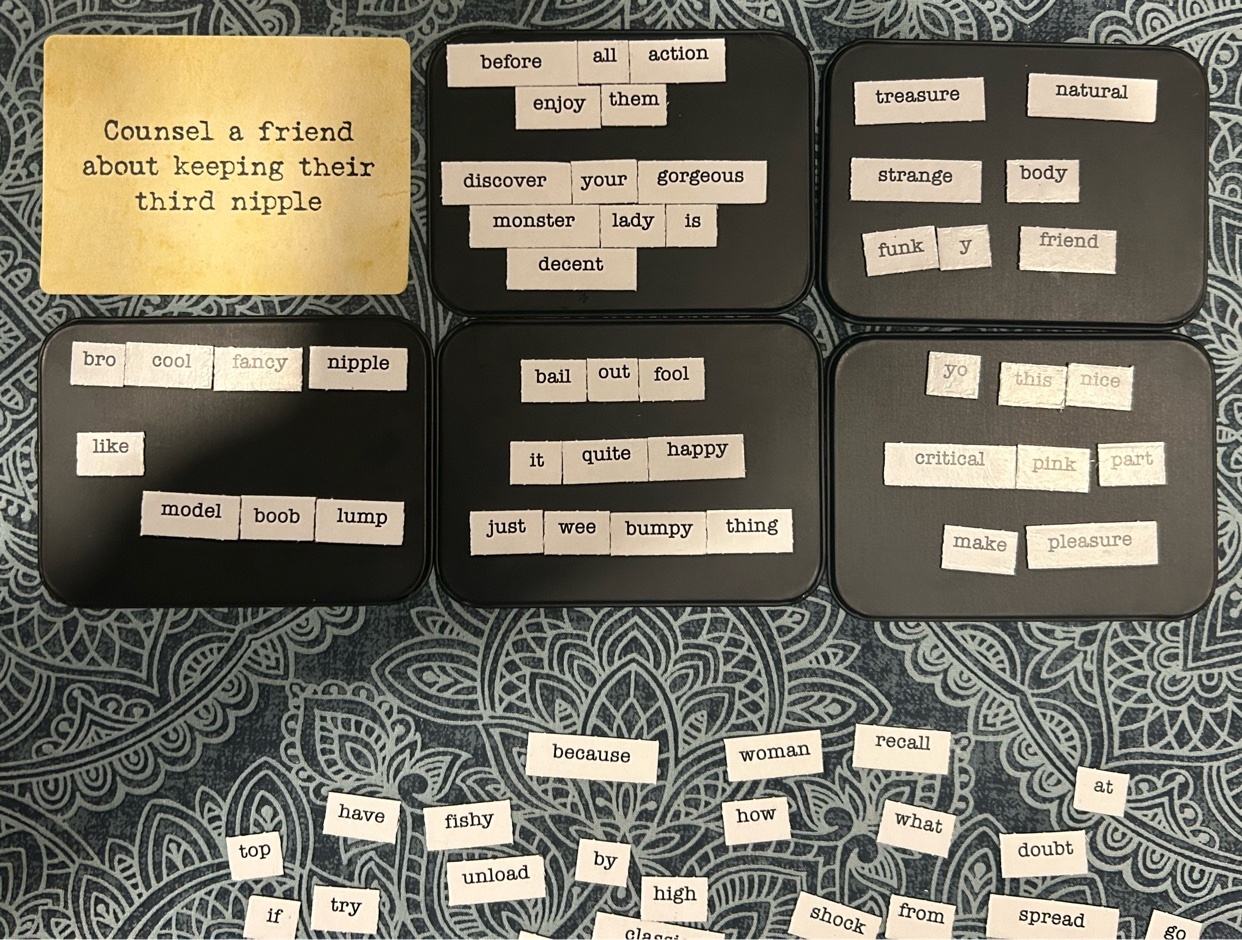 Counsel a friend
about keeping their
third nipple
before all action
enjoy them
discover your gorgeous
monster lady is
decent
treasure natural
strange body
funk y friend
bro cool fancy nipple
like
model boob lump
bail out fool
it quite happy
just wee bumpy thing
yo this nice
critical pink part
make pleasure
because woman recall
at
have fishy how what
top unload by doubt
high
if try shock from spread go